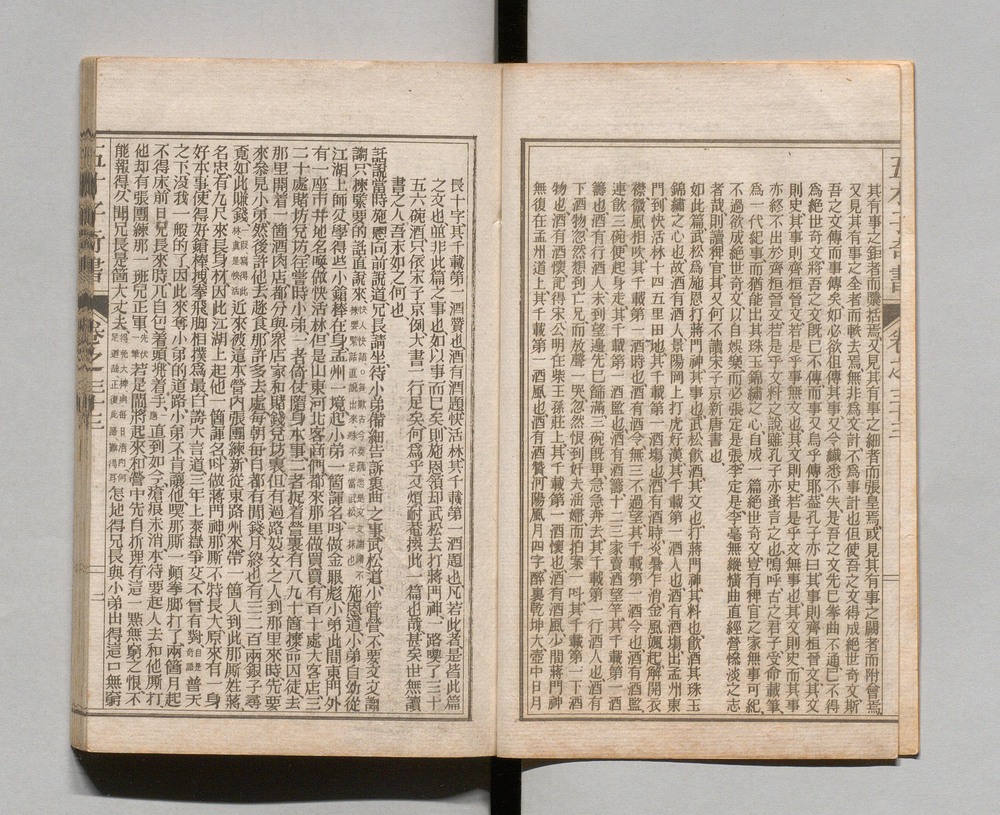 其有事之鉅者而隱括焉又見其有事之細者而張皇焉或見其有事之闕者而附會焉
又見其有事之全者而軼去焉無非爲文計不爲事計也但使吾之文得成絕世奇文斯
吾之文傳而事傳矣如必欲但傳其事又令纖悉不失是吾之文先已拳曲不通已不得
爲絕世奇文將吾之文旣已不傳而事又烏乎傳耶蓋孔子亦曰其事則齊桓晉文其文
則史其事則齊桓晉文若是乎事無文也其文則史若是乎文無事也其文則史而其事
亦終不出於齊桓晉文若是乎文料之說雖孔子亦蚤言之也嗚呼古之君子受命載筆
爲一代紀事而猶能出其珠玉錦繡之心自成一篇絕世奇文豈有稗官之家無事可紀
不過欲成絕世奇文以自娛樂而必張定是張李定是李毫無縱橫曲直經營慘淡之志
者哉則讀稗官其又何不讀宋子京新唐書也
如此篇武松爲施恩打蔣門神其事也武松飲酒其文也打蔣門神其料也飲酒其珠玉
錦繡之心也故酒有酒人景陽岡上打虎好漢其千載第一酒人也酒有酒塲出孟州東
門到快活林十四五里田地其千載第一酒塲也酒有酒時炎暑乍消金風颯起解開衣
襟微風相吹其千載第一酒時也酒有酒令無三不過望其千載第一酒令也酒有酒監
連飲三碗便起身走其千載第一酒監也酒有酒籌十二三家賣酒望竿其千載第一酒
籌也酒有行酒人未到望邊先已篩滿三碗旣畢急急奔去其千載第一行酒人也酒有
下酒物忽然想到亡兄而放聲一哭忽然恨到奸夫淫婦而拍案一叫其千載第一下酒
物也酒有酒懷記得宋公明在柴王孫莊上其千載第一酒懷也酒有酒風少間蔣門神
無復在孟州道上其千載第一酒風也酒有酒贊河陽風月四字醉裏乾坤大壺中日月
長十字其千載第一酒贊也酒有酒題快活林其千載第一酒題也凡若此者是皆此篇
之文也並非此篇之事也如以事而已矣則施恩領却武松去打蔣門神一路喫了三十
五六碗酒只依宋子京例大書一行足矣何爲乎又煩耐菴撰此一篇也哉甚矣世無讀
書之人吾末如之何也
話說當時施恩向前說道兄長請坐待小弟備細告訴衷曲之事武松道小管營不要文文謅
謅只揀緊要的話直說來
施恩道小弟自幼從
江湖上師父學得些小鎗棒在身孟州一境起小弟一箇諢名叫做金眼彪小弟此間東門外
有一座市井地名喚做快活林但是山東河北客商們都來那里做買賣有百十處大客店三
二十處賭坊兌坊往常時小弟一者倚仗隨身本事二者捉着營裏有八九十箇拚命囚徒去
那里開着一箇酒肉店都分與衆店家和賭錢兌坊裏但有過路妓女之人到那里來時先要
來參見小弟然後許他去趁食那許多去處每朝每日都有閒錢月終也有三二百兩銀子尋
覓如此賺錢
近來被這本營內張團練新從東路州來帶一箇人到此那厮姓蔣
名忠有九尺來長身材因此江湖上起他一箇諢名叫做蔣門神那厮不特長大原來有一身
好本事使得好鎗棒拽拳飛脚相撲爲最自誇大言道三年上泰嶽爭交不曾有對
普天
之下沒我一般的了因此來奪小弟的道路小弟不肯讓他喫那厮一頓拳脚打了兩箇月起
不得床前日兄長來時兀自包着頭兠着手
直到如今瘡痕未消本待要起人去和他厮打
他却有張團練那一班兒正軍
若是鬧將起來和營中先自折理有這一點無窮之恨不
能報得久聞兄長是箇大丈夫
怎地得兄長與小弟出得這口無窮